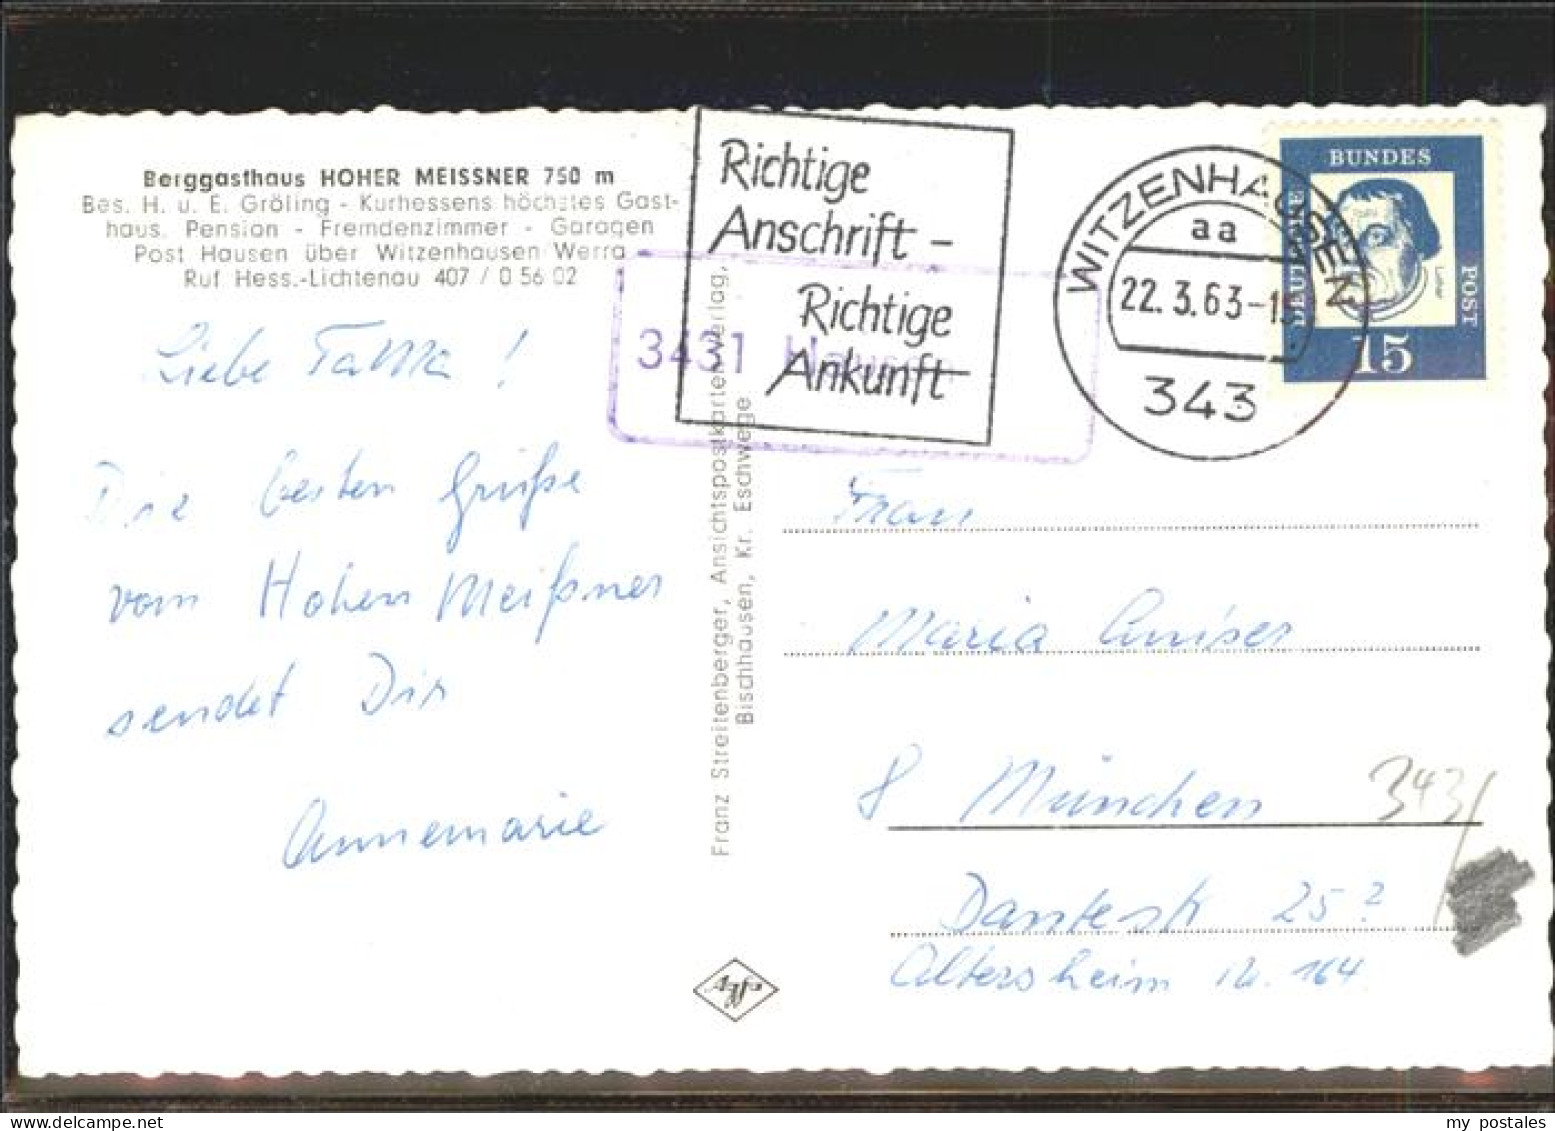 Berggasthaus HOHER MEISSNER 750 m
Bes. H. u. E. Gröling - Kurhessens höchstes Gast-
haus. Pension - Fremdenzimmer - Garagen
Post Hausen über Witzenhausen Werra
Ruf Hess.-Lichtenau 407 / 0 56 02
Liebe Tamma!
Die besten Grüße
vom Hohen Meißner
sendet Dir
Annemarie
Franz Streitenberger, Ansichtspostkartenverlag,
Bischhausen, Kr. Eschwege
Richtige
Anschrift -
Richtige
Ankunft
3431 Hausen
WITZENHAUSEN
aa
22.3.63-15
343
BUNDES
DEUTSCHE
POST
Luther
15
Frau
Maria
8 München
3431
Dantestr 25?
Altersheim Nr. 164
my postales